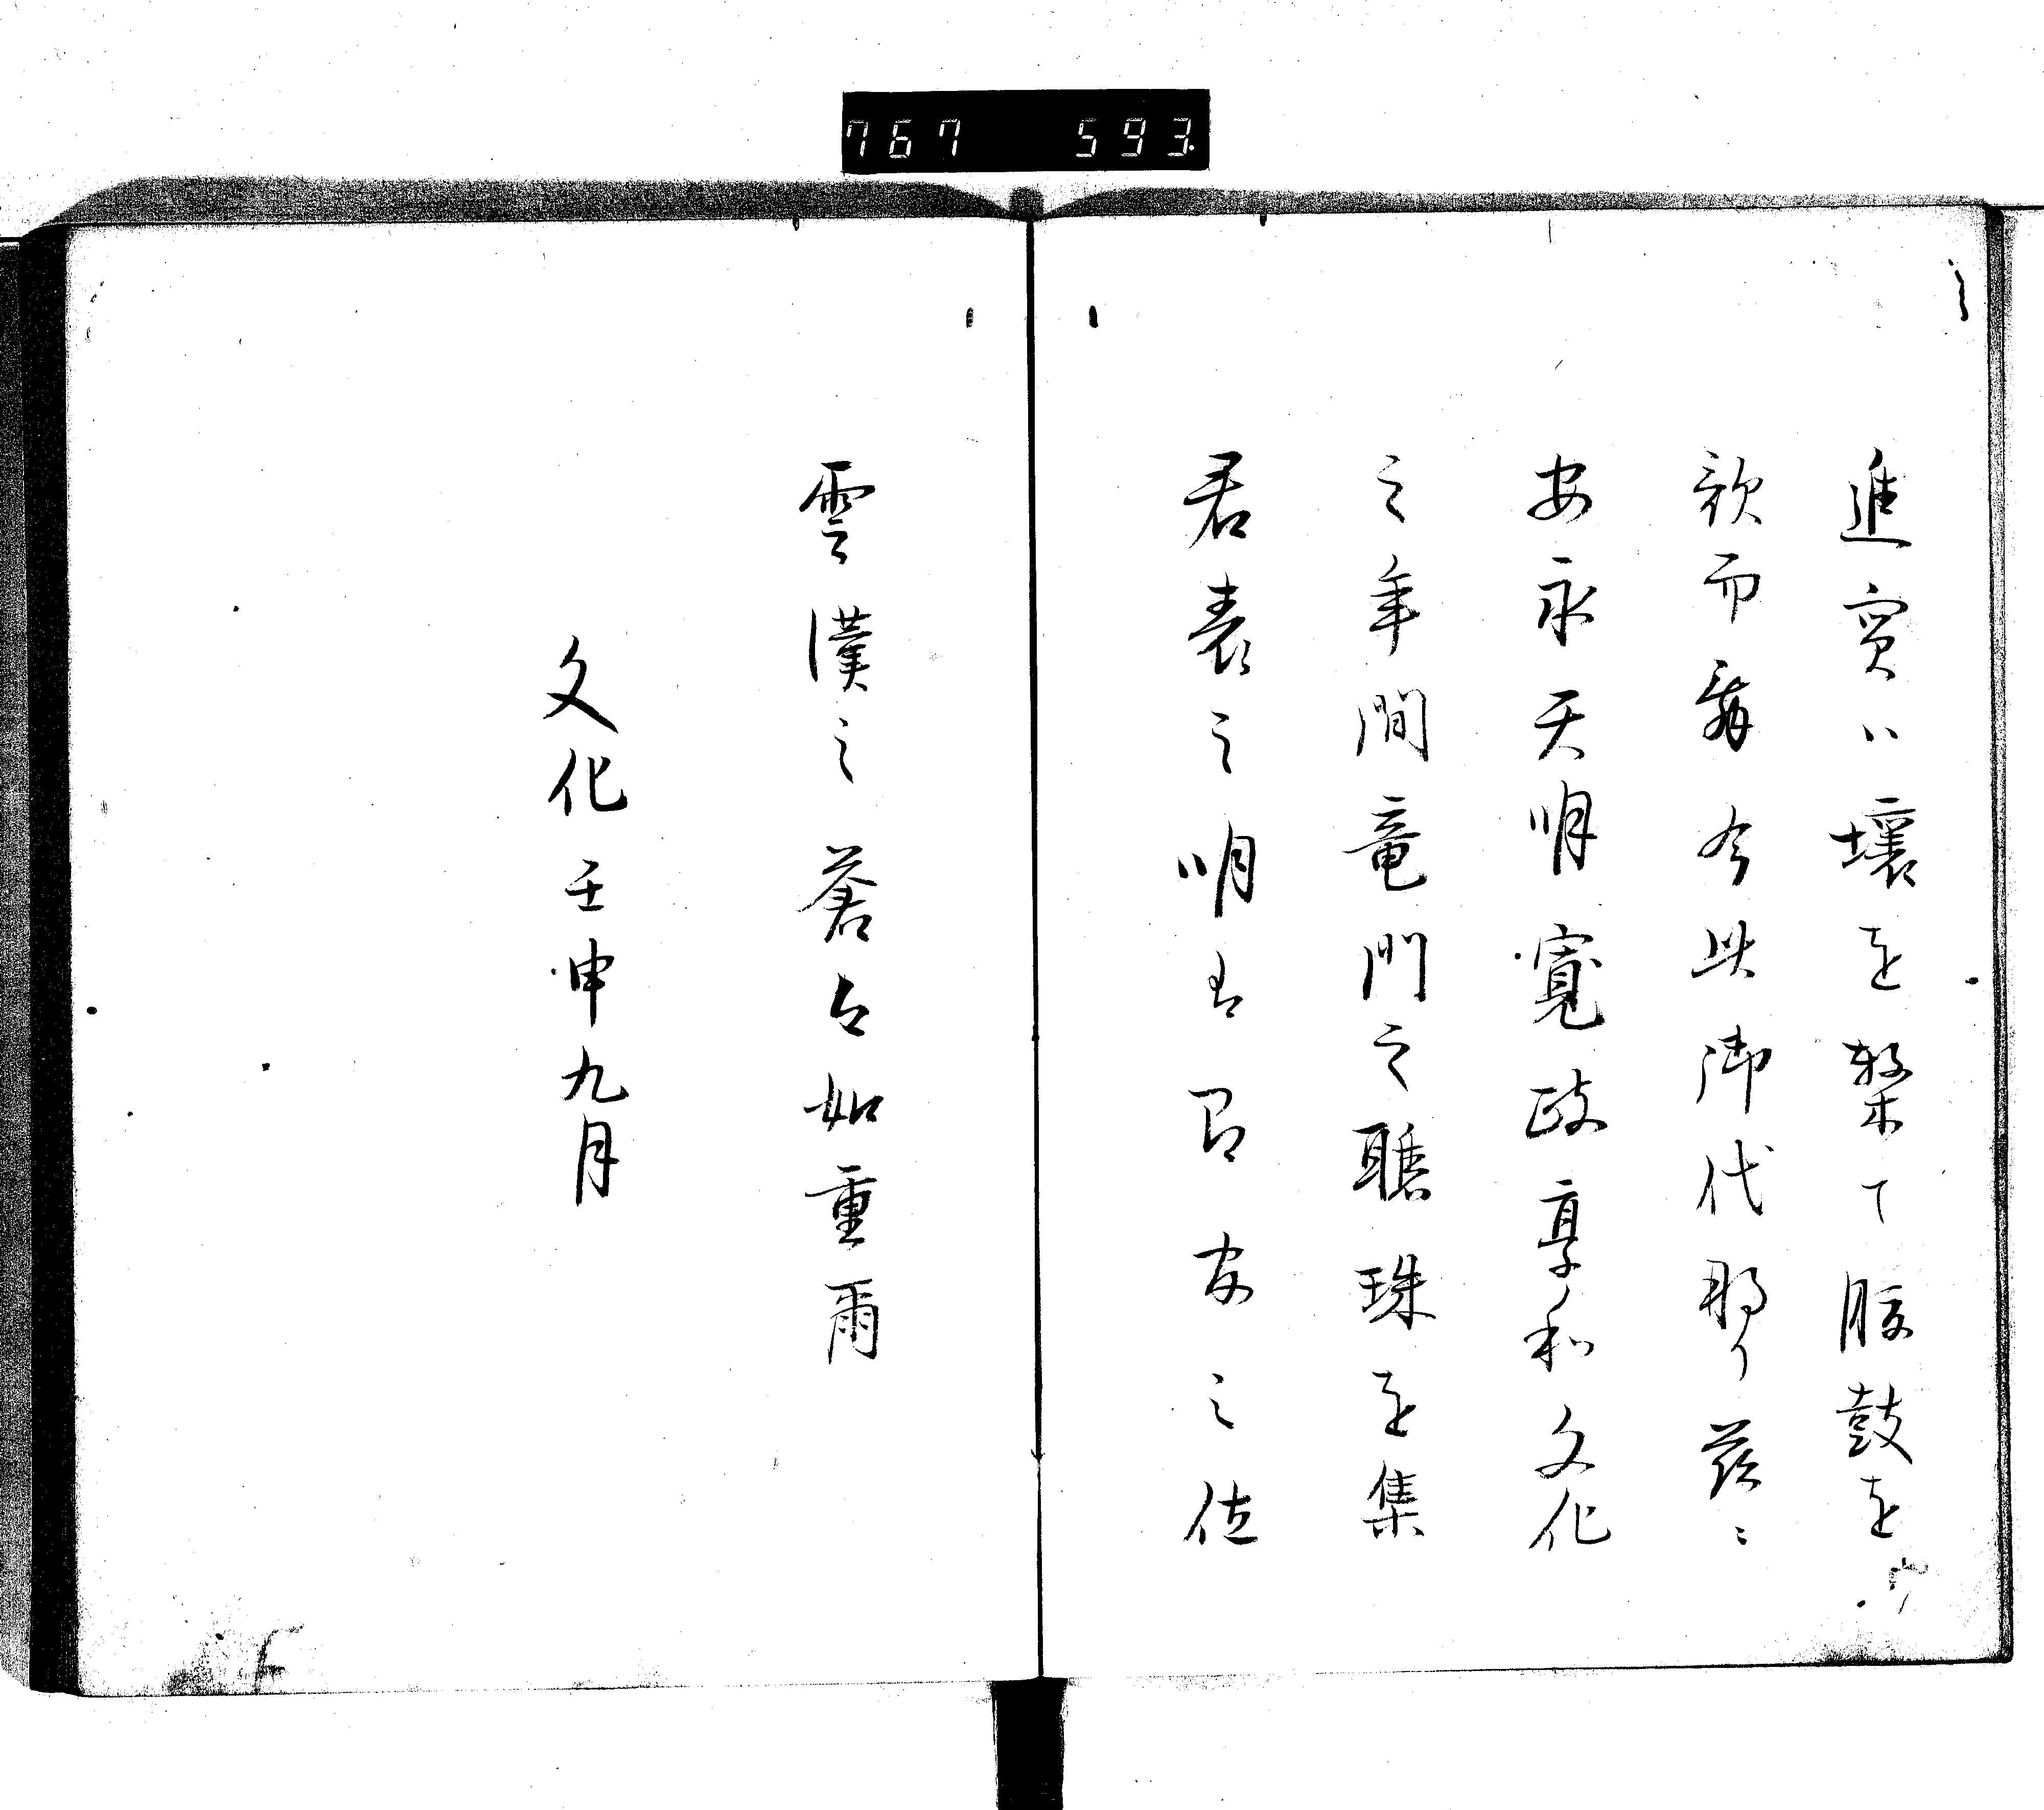 767 593.
進實ハ壤を撃て腹鼓を
歌而舞今此御代那り茲ニ
安永天明寛政享和文化
之年間竜門之聽珠を集
君表之明 之位
雲漢之蒼々如重爾
文化壬申九月